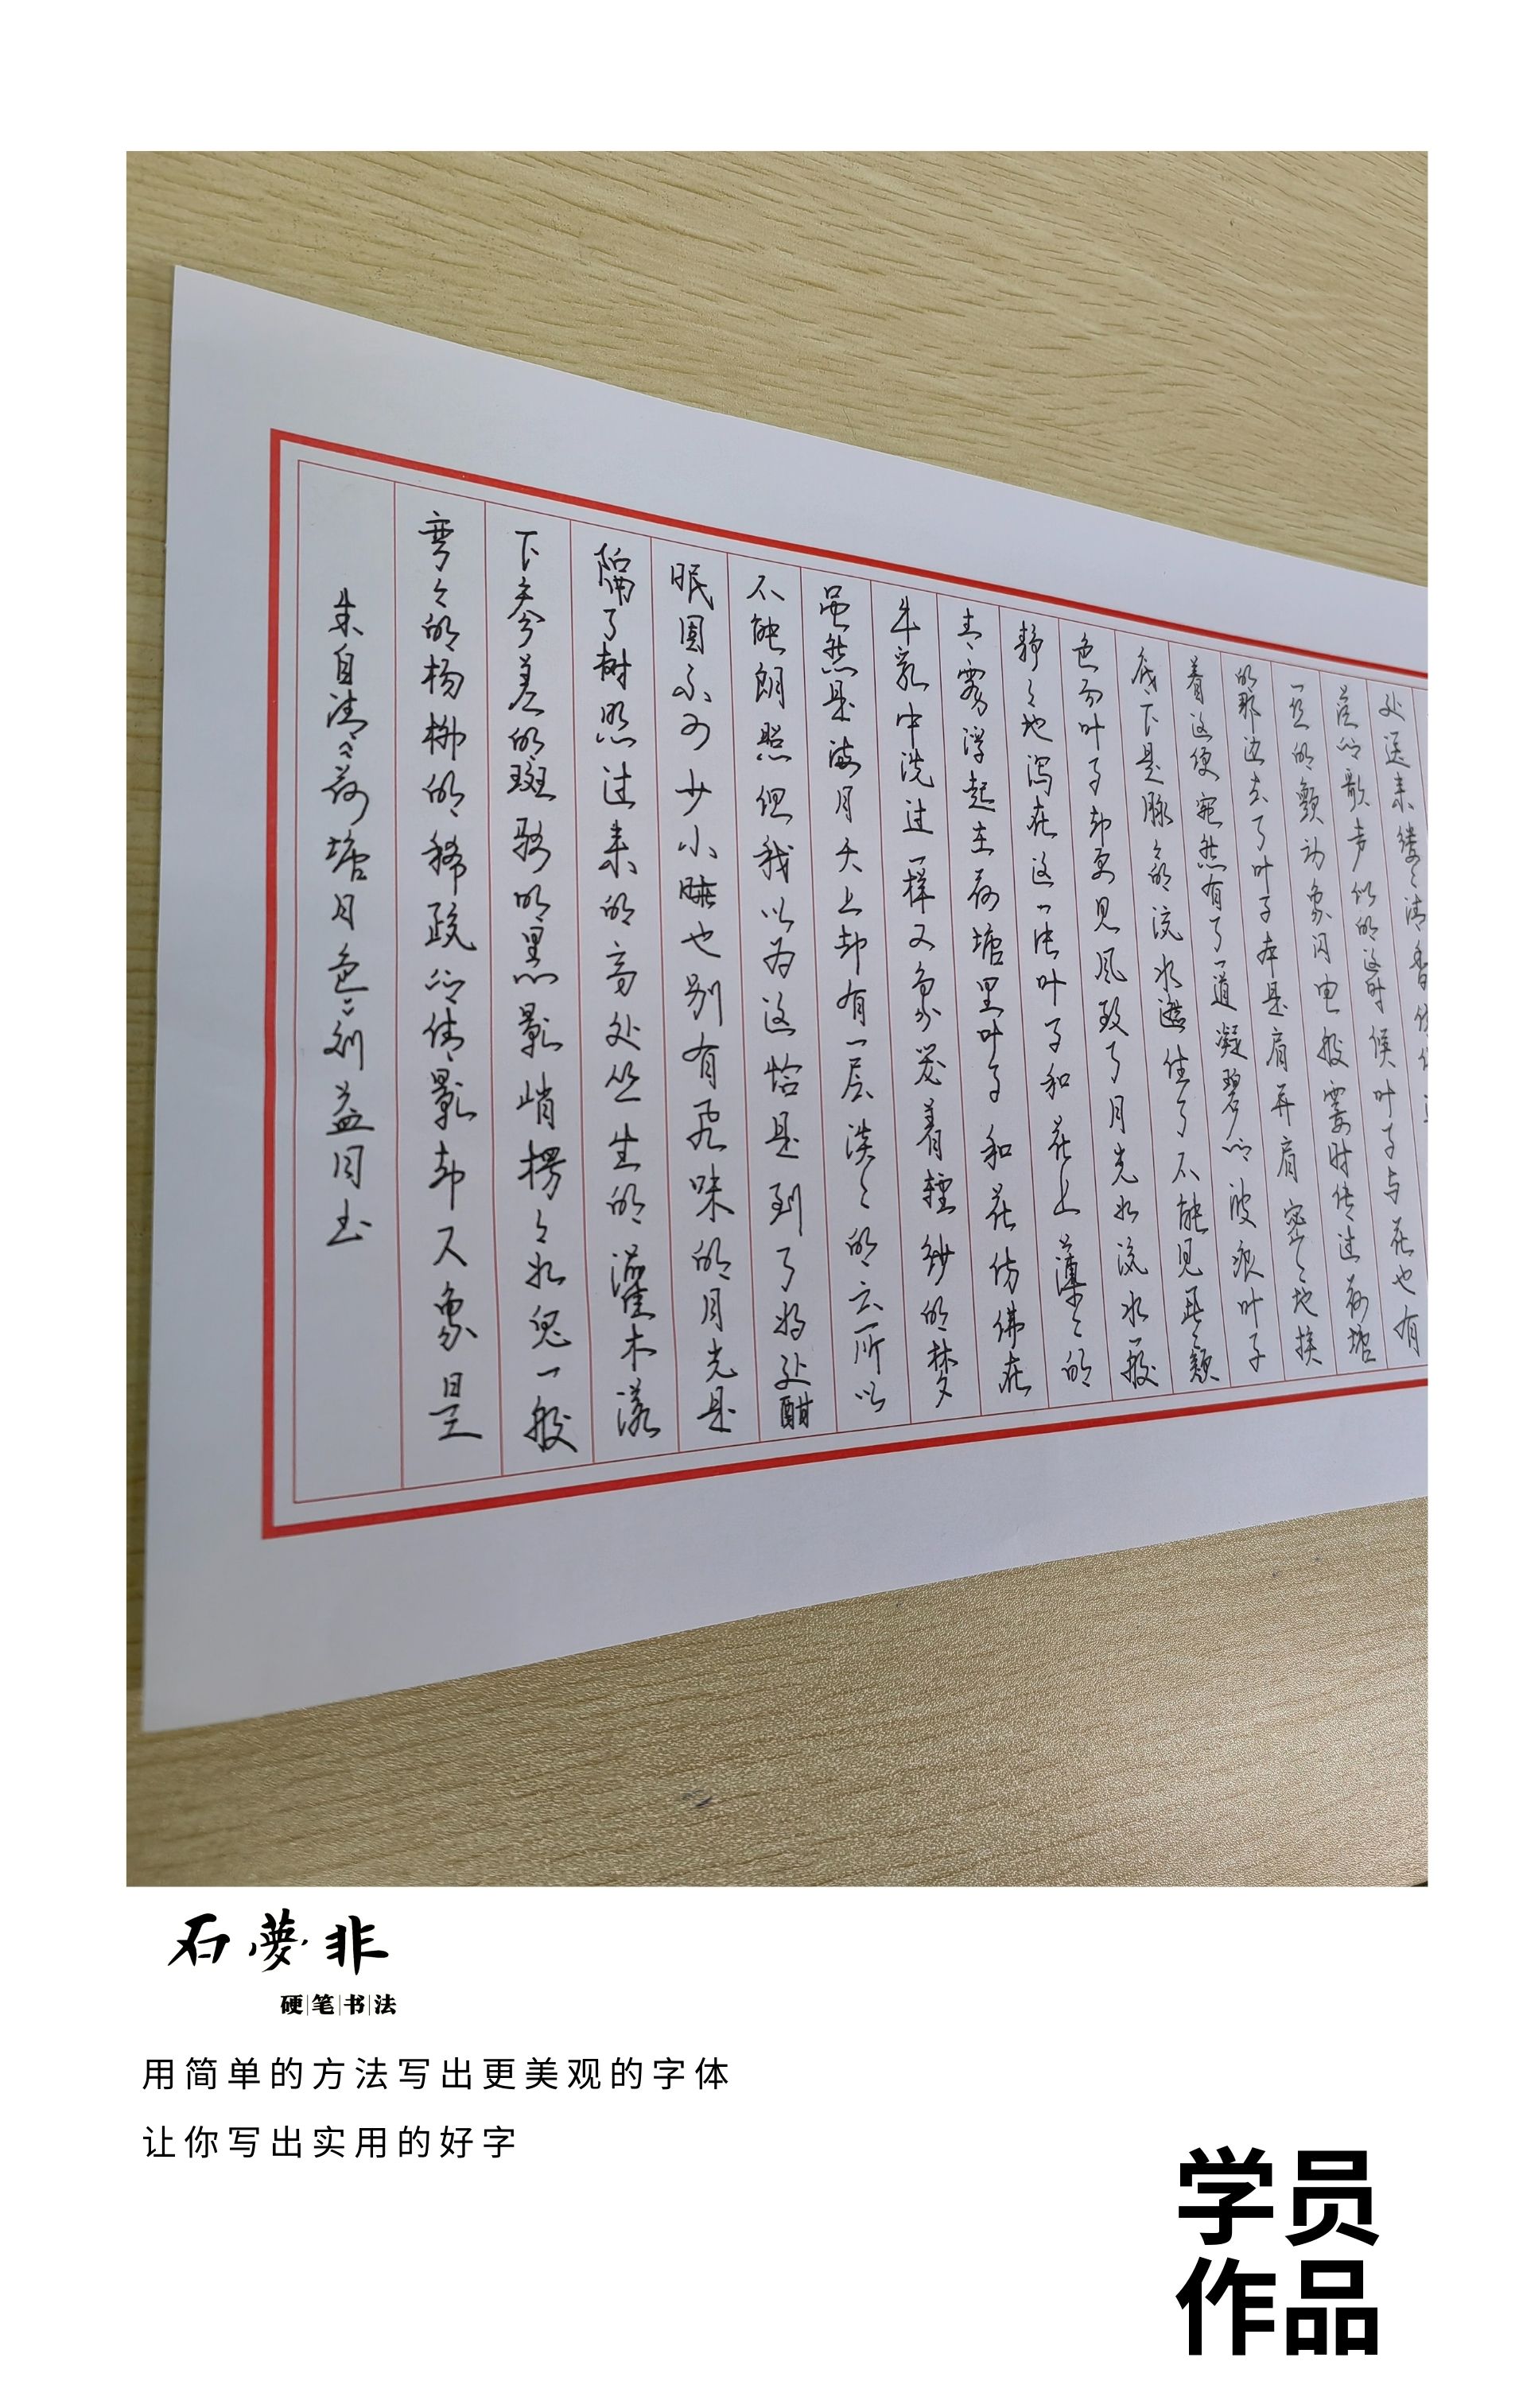 处送来缕々清香仿
茫的歌声似的这时候叶子与花也有
一丝的颤动象闪电般霎时传过荷塘
的那边去了叶子本是肩并肩密々地挨
着这便宛然有了一道凝碧的波痕叶子
底下是脉々的流水遮住了不能见一些颜
色而叶子却更见风致了月光如流水一般
静々地泻在这一片叶子和花上薄々的
青雾浮起在荷塘里叶子和花仿佛在
牛乳中洗过一样又象笼着轻纱的梦
虽然是满月天上却有一层淡々的云所以
不能朗照但我以为这恰是到了好处酣
眠固不可少小睡也别有风味的月光是
隔了树照过来的高处丛生的灌木落
下参差的斑驳的黑影峭楞々如鬼一般
弯々的杨柳的稀疏的倩影却又象是
朱自清〈〈荷塘月色〉〉刘益同书
石夢非
硬笔书法
用简单的方法写出更美观的字体
让你写出实用的好字
学员
作品